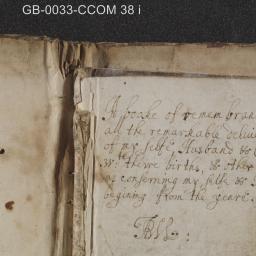 GB-0033-CCOM 38 i
A booke of remembran
all the remarkable deliui
of my selfe, Husband &
wth theire births, & other
as conserning my selfe &
begining from the yeare